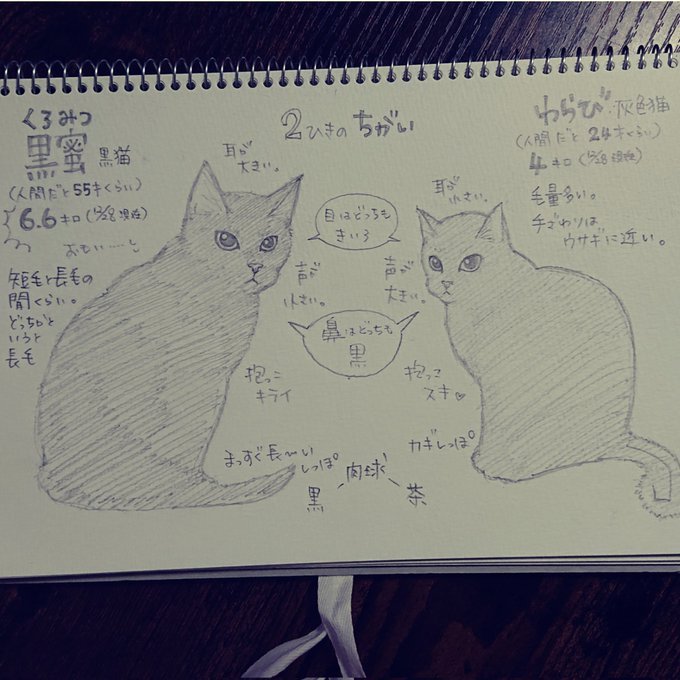 2ひきの ちがい
くろみつ
黒蜜 黒猫
(人間だと55才くらい)
6.6キロ(12/28現在)
おもい……し
短毛と長毛の
間くらい。
どっちかと
いうと
長毛
耳が
大きい。
声が
小さい。
抱っこ
キライ
まっすぐ長〜い
しっぽ
目はどっちも
きいろ
鼻はどっちも
黒
肉球
黒
茶
わらび 灰色猫
(人間だと24才くらい)
4キロ(12/28現在)
毛量多い。
手ざわりは
ウサギに近い。
耳が
小さい。
声が
大きい。
抱っこ
スキ♡
カギしっぽ